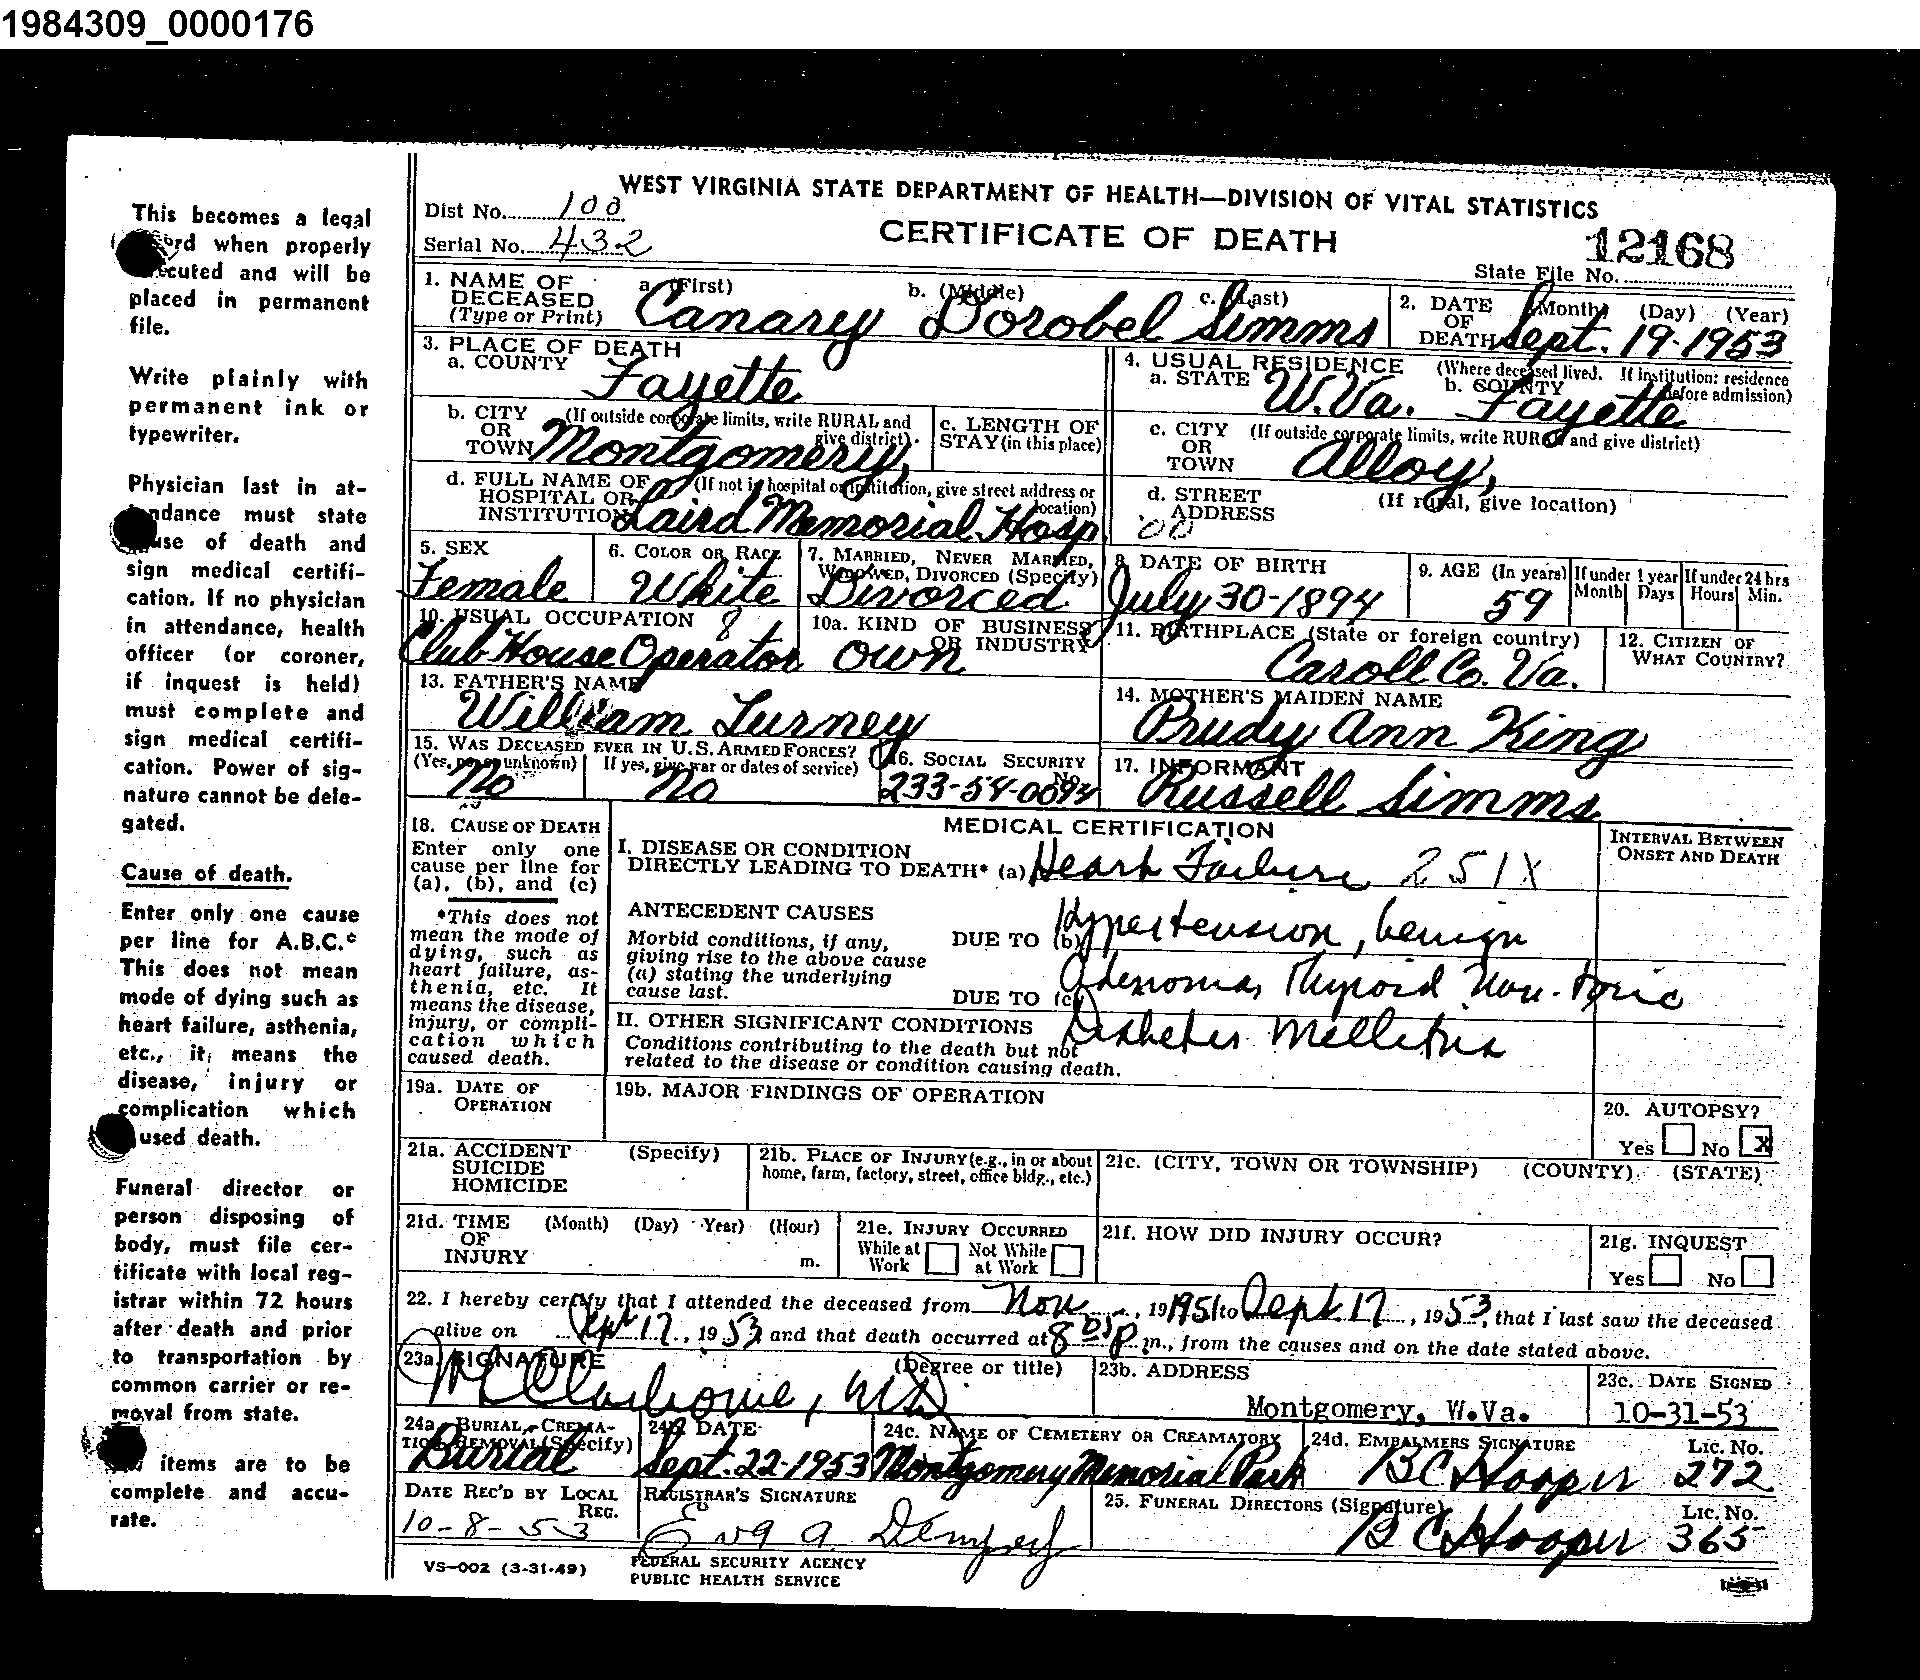 1984309_0000176
This becomes a legal
when properly
and will be
placed in permanent
file.
Write plainly with
permanent ink or
typewriter.
Physician last in at-
tendance must state
cause of death and
sign medical certifi-
cation. If no physician
in attendance, health
officer (or coroner,
if inquest is held)
must complete and
sign medical certifi-
cation. Power of sig-
nature cannot be dele-
gated.
Cause of death.
Enter only one cause
per line for A.B.C.*
This does not mean
mode of dying such as
heart failure, asthenia,
etc., it means the
disease, injury or
complication which
caused death.
Funeral director or
person disposing of
body, must file cer-
tificate with local reg-
istrar within 72 hours
after death and prior
to transportation by
common carrier or re-
moval from state.
items are to be
complete and accu-
rate.
WEST VIRGINIA STATE DEPARTMENT OF HEALTH—DIVISION OF VITAL STATISTICS
Dist No. 100
CERTIFICATE OF DEATH
Serial No. 432
12168
State File No.
1. NAME OF DECEASED (Type or Print) a. (First) b. (Middle) c. (Last)
Canary Dorobel Simms
2. DATE OF DEATH (Month) (Day) (Year)
Sept. 19-1953
3. PLACE OF DEATH
a. COUNTY Fayette
4. USUAL RESIDENCE (Where deceased lived. If institution: residence before admission)
a. STATE W.Va. b. COUNTY Fayette
b. CITY OR TOWN (If outside corporate limits, write RURAL and give district)
Montgomery,
c. LENGTH OF STAY (in this place)
c. CITY OR TOWN (If outside corporate limits, write RURAL and give district)
Alloy,
d. FULL NAME OF HOSPITAL OR INSTITUTION (If not in hospital or institution, give street address or location)
Laird Memorial Hosp.
d. STREET ADDRESS (If rural, give location)
00
5. SEX
Female
6. COLOR OR RACE
White
7. MARRIED, NEVER MARRIED, WIDOWED, DIVORCED (Specify)
Divorced
8. DATE OF BIRTH
July 30-1894
9. AGE (In years)
59
If under 1 year Month Days
If under 24 hrs Hours Min.
10. USUAL OCCUPATION 8
Club House Operator
10a. KIND OF BUSINESS OR INDUSTRY
Own
11. BIRTHPLACE (State or foreign country)
Caroll Co. Va.
12. CITIZEN OF WHAT COUNTRY?
13. FATHER'S NAME
William Turney
14. MOTHER'S MAIDEN NAME
Prudy Ann King
15. WAS DECEASED EVER IN U.S. ARMED FORCES?
(Yes, no or unknown) If yes, give war or dates of service)
No No
16. SOCIAL SECURITY No.
233-54-0094
17. INFORMANT
Russell Simms
18. CAUSE OF DEATH
Enter only one
cause per line for
(a), (b), and (c)
*This does not
mean the mode of
dying, such as
heart failure, as-
thenia, etc. It
means the disease,
injury, or compli-
cation which
caused death.
MEDICAL CERTIFICATION
INTERVAL BETWEEN ONSET AND DEATH
I. DISEASE OR CONDITION
DIRECTLY LEADING TO DEATH* (a) Heart Failure 251X
ANTECEDENT CAUSES
Morbid conditions, if any,
giving rise to the above cause
(a) stating the underlying
cause last.
DUE TO (b) Hypertension, benign
DUE TO (c) Adenoma, Thyroid Non-toxic
II. OTHER SIGNIFICANT CONDITIONS
Diabetes Mellitus
Conditions contributing to the death but not
related to the disease or condition causing death.
19a. DATE OF OPERATION
19b. MAJOR FINDINGS OF OPERATION
20. AUTOPSY?
Yes No X
21a. ACCIDENT SUICIDE HOMICIDE (Specify)
21b. PLACE OF INJURY (e.g., in or about home, farm, factory, street, office bldg., etc.)
21c. (CITY, TOWN OR TOWNSHIP) (COUNTY) (STATE)
21d. TIME OF INJURY (Month) (Day) Year) (Hour) m.
21e. INJURY OCCURRED
While at Work Not While at Work
21f. HOW DID INJURY OCCUR?
21g. INQUEST
Yes No
22. I hereby certify that I attended the deceased from Nov, 19 1951 to Sept. 17, 1953, that I last saw the deceased
alive on Sept 17, 1953 and that death occurred at 8 05 p m., from the causes and on the date stated above.
23a. SIGNATURE (Degree or title)
W C Claiborne, MD
23b. ADDRESS
Montgomery, W.Va.
23c. DATE SIGNED
10-31-53
24a. BURIAL, CREMATION, REMOVAL (Specify)
Burial
24b. DATE
Sept. 22-1953
24c. NAME OF CEMETERY OR CREAMATORY
Montgomery Memorial Park
24d. EMBALMERS SIGNATURE Lic. No.
BC Hooper 272
DATE REC'D BY LOCAL REG.
10-8-53
REGISTRAR'S SIGNATURE
Eva A Dempsey
25. FUNERAL DIRECTORS (Signature) Lic. No.
BC Hooper 365
VS-002 (3-31-49)
FEDERAL SECURITY AGENCY
PUBLIC HEALTH SERVICE